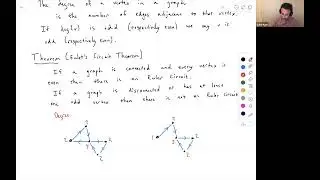 The degree of a vertex in a graph
is the number of edges adjacent to that vertex.
If deg(v) is odd (respectively even) we say v is
odd (respectively even).
Theorem (Euler's Circuit Theorem)
If a graph is connected and every vertex is
even then there is an Euler Circuit.
If a graph is disconnected or has at least
one odd vertex then there is not an Euler Circuit
Degree:
2 2 4 2 2 2
1 2 3 2 2 2